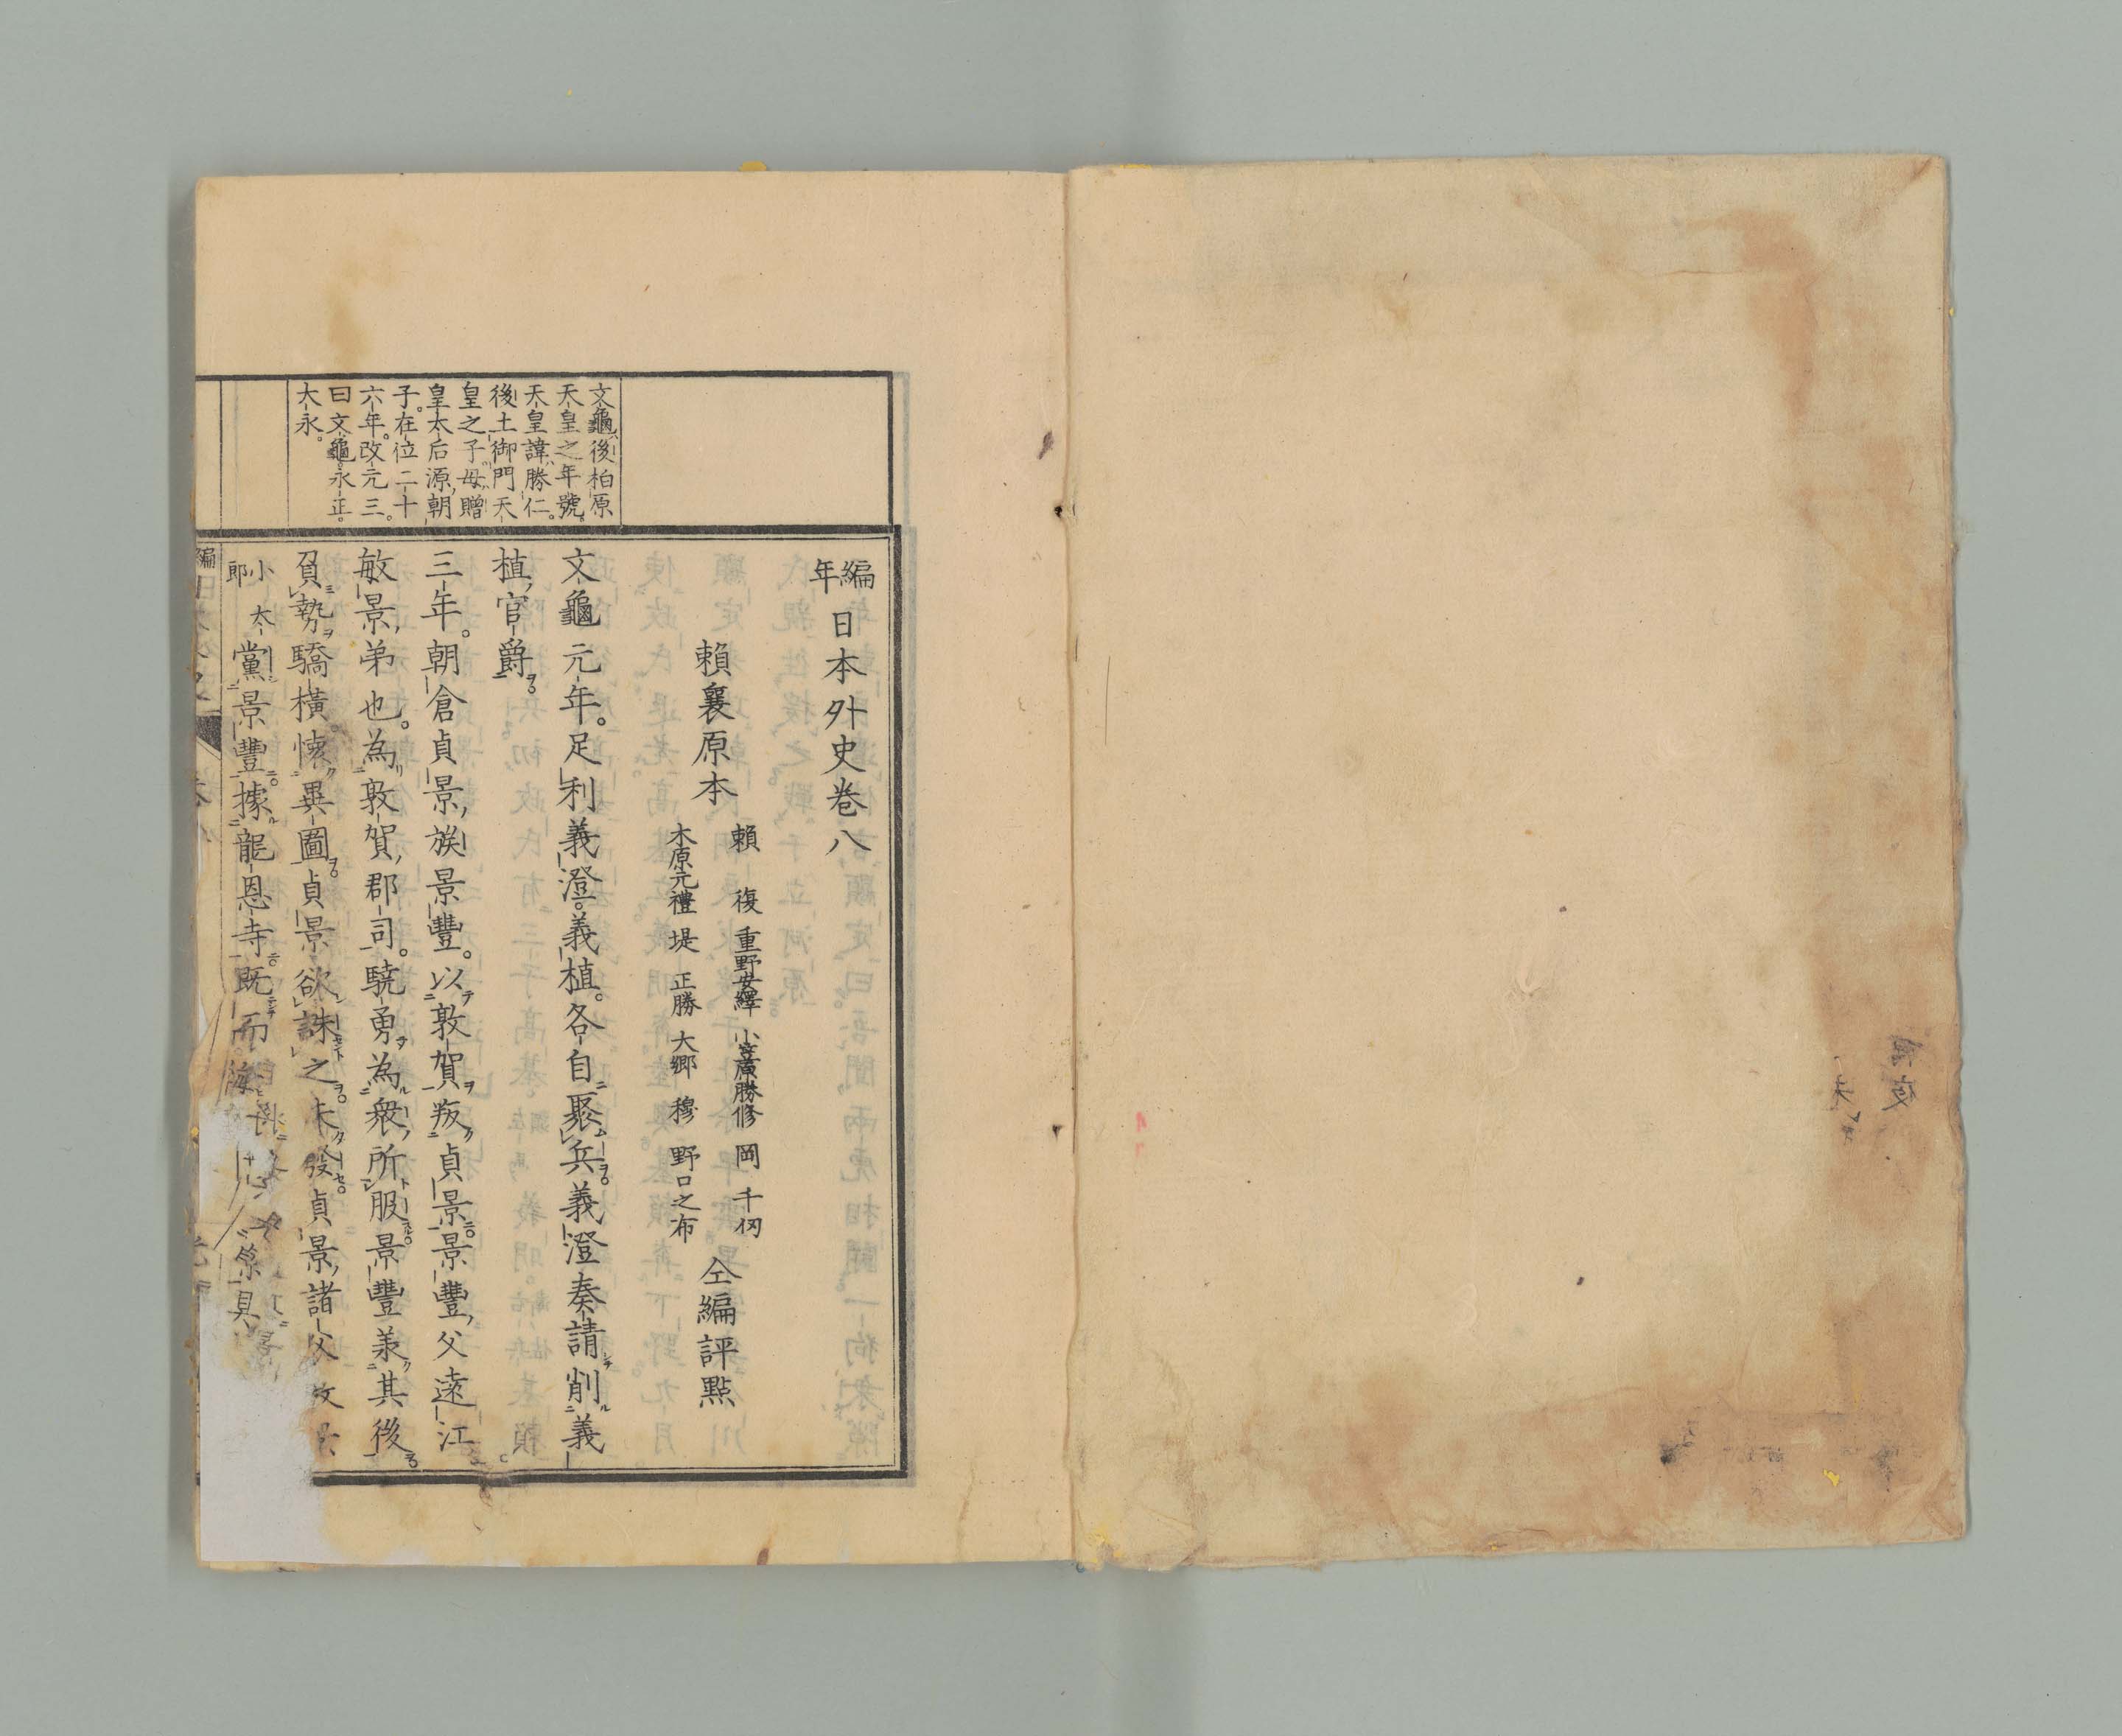 編年日本外史巻八
賴襄原本
賴復 重野安繹 小笠原勝修 岡千仞
木原元禮 堤正勝 大郷穆 野口之布
仝編評點
文龜後柏原
天皇之年號。
天皇諱勝仁。
後土御門天
皇之子母贈
皇太后源朝
子。在位二十
六年。改元三。
曰文龜。永正。
大永。
文龜元年。足利義澄。義植。各自聚兵。義澄奏請削義
植官爵。
三年。朝倉貞景族景豐。以敦賀叛貞景。景豐父遠江
敏景弟也。為敦賀郡司。驍勇為衆所服。景豐羕其後
負勢驕橫。懷異圖。貞景欲誅之。未發。貞景諸父
小太郎黨景豐。據龍恩寺。既而